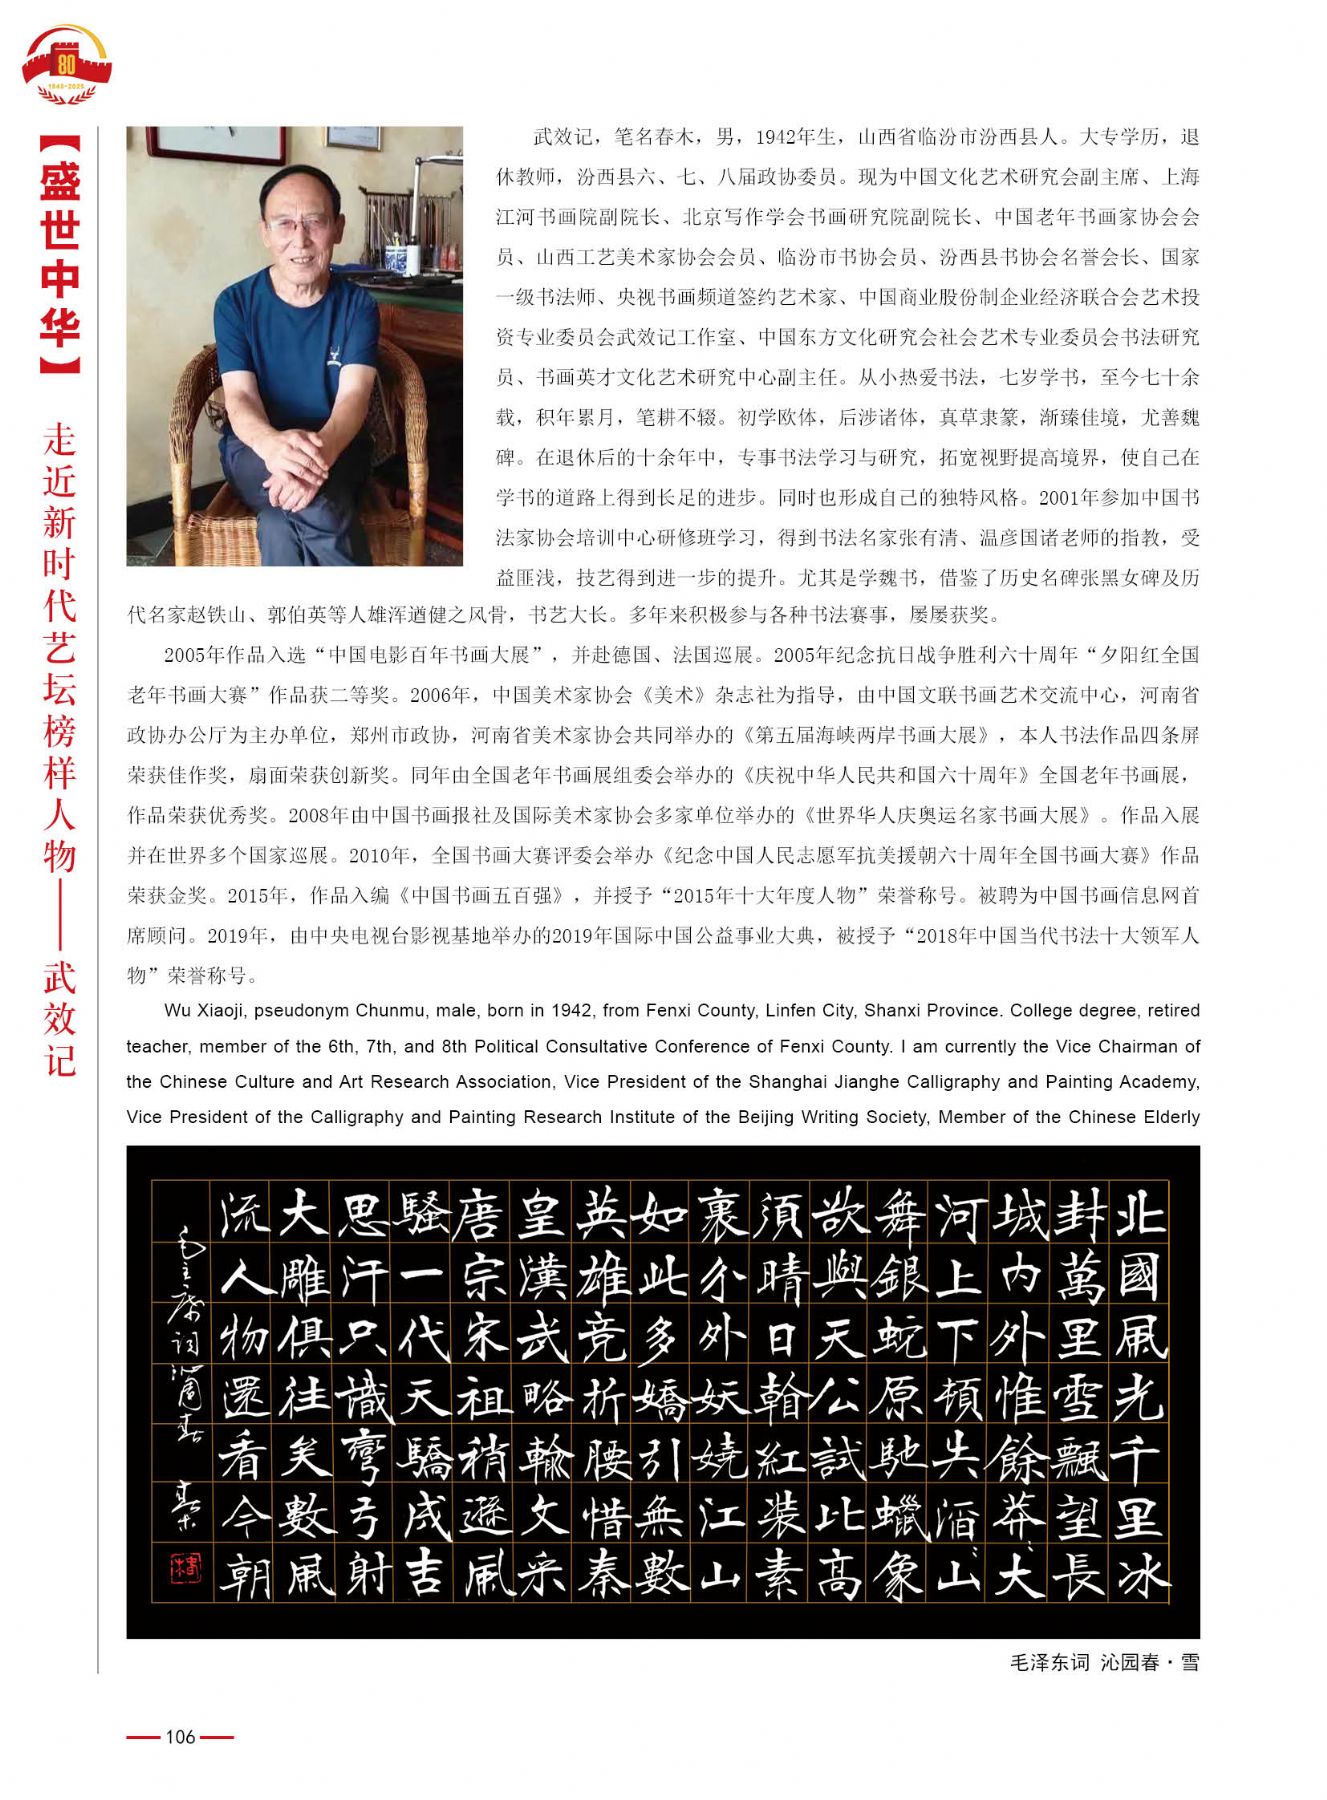 80
1945-2025
【盛世中华】
走近新时代艺坛榜样人物——武效记
武效记，笔名春木，男，1942年生，山西省临汾市汾西县人。大专学历，退
休教师，汾西县六、七、八届政协委员。现为中国文化艺术研究会副主席、上海
江河书画院副院长、北京写作学会书画研究院副院长、中国老年书画家协会会
员、山西工艺美术家协会会员、临汾市书协会员、汾西县书协会名誉会长、国家
一级书法师、央视书画频道签约艺术家、中国商业股份制企业经济联合会艺术投
资专业委员会武效记工作室、中国东方文化研究会社会艺术专业委员会书法研究
员、书画英才文化艺术研究中心副主任。从小热爱书法，七岁学书，至今七十余
载，积年累月，笔耕不辍。初学欧体，后涉诸体，真草隶篆，渐臻佳境，尤善魏
碑。在退休后的十余年中，专事书法学习与研究，拓宽视野提高境界，使自己在
学书的道路上得到长足的进步。同时也形成自己的独特风格。2001年参加中国书
法家协会培训中心研修班学习，得到书法名家张有清、温彦国诸老师的指教，受
益匪浅，技艺得到进一步的提升。尤其是学魏书，借鉴了历史名碑张黑女碑及历
代名家赵铁山、郭伯英等人雄浑遒健之风骨，书艺大长。多年来积极参与各种书法赛事，屡屡获奖。
2005年作品入选“中国电影百年书画大展”，并赴德国、法国巡展。2005年纪念抗日战争胜利六十周年“夕阳红全国
老年书画大赛”作品获二等奖。2006年，中国美术家协会《美术》杂志社为指导，由中国文联书画艺术交流中心，河南省
政协办公厅为主办单位，郑州市政协，河南省美术家协会共同举办的《第五届海峡两岸书画大展》，本人书法作品四条屏
荣获佳作奖，扇面荣获创新奖。同年由全国老年书画展组委会举办的《庆祝中华人民共和国六十周年》全国老年书画展，
作品荣获优秀奖。2008年由中国书画报社及国际美术家协会多家单位举办的《世界华人庆奥运名家书画大展》。作品入展
并在世界多个国家巡展。2010年，全国书画大赛评委会举办《纪念中国人民志愿军抗美援朝六十周年全国书画大赛》作品
荣获金奖。2015年，作品入编《中国书画五百强》，并授予“2015年十大年度人物”荣誉称号。被聘为中国书画信息网首
席顾问。2019年，由中央电视台影视基地举办的2019年国际中国公益事业大典，被授予“2018年中国当代书法十大领军人
物”荣誉称号。
Wu Xiaoji, pseudonym Chunmu, male, born in 1942, from Fenxi County, Linfen City, Shanxi Province. College degree, retired
teacher, member of the 6th, 7th, and 8th Political Consultative Conference of Fenxi County. I am currently the Vice Chairman of
the Chinese Culture and Art Research Association, Vice President of the Shanghai Jianghe Calligraphy and Painting Academy,
Vice President of the Calligraphy and Painting Research Institute of the Beijing Writing Society, Member of the Chinese Elderly
北國風光千里冰
封萬里雪飄望長
城內外惟餘莽〻大
河上下頓失滔〻山
舞銀蛇原馳蠟象
欲與天公試比高
須晴日看紅裝素
裹分外妖嬈江山
如此多嬌引無數
英雄競折腰惜秦
皇漢武略輸文采
唐宗宋祖稍遜風
騷一代天驕成吉
思汗只識彎弓射
大雕俱往矣數風
流人物還看今朝
毛主席詞沁園春 春木
毛泽东词 沁园春·雪
106